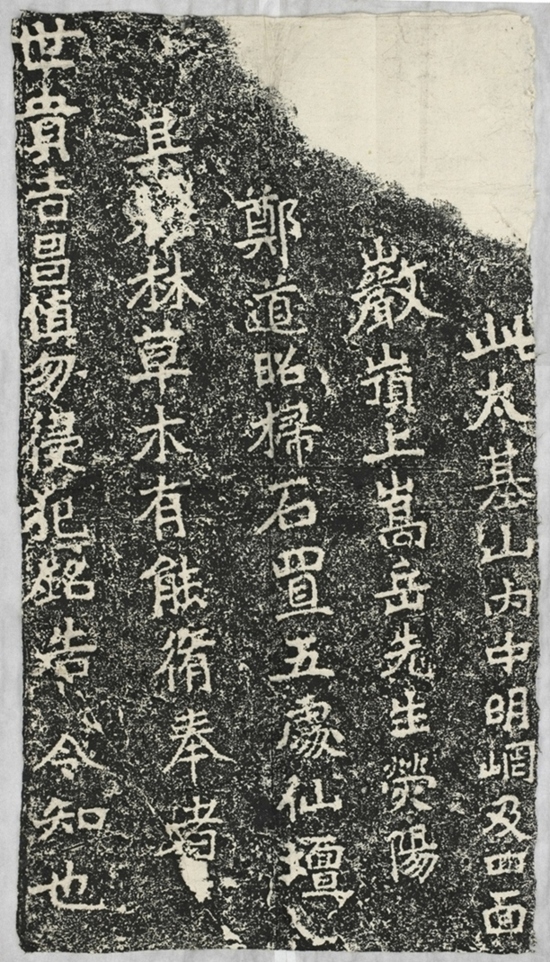 此太基山内中明㟠及四面
巖嶺上嵩岳先生熒陽
鄭道昭掃石置五處仙壇
其林草木有能脩奉者
世貴吉昌慎勿侵犯銘告令知也